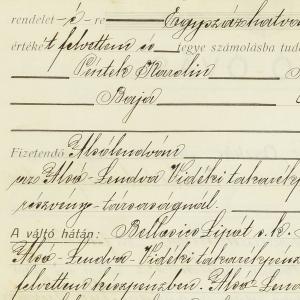 rendelet -é- re Egyszázhatva
értéket felvettem és tegye számolásba tud
Péntek Karolin
Baja
Fizetendő Alsólendván
pr. Alsó-Lendva Vidéki takarékp
részvény-társaságnál.
A váltó hátán: Bellosics Lipót s. k.
Alsó-Lendva Vidéki takarékpénz
felvettem készpénzben. Alsó-Lend